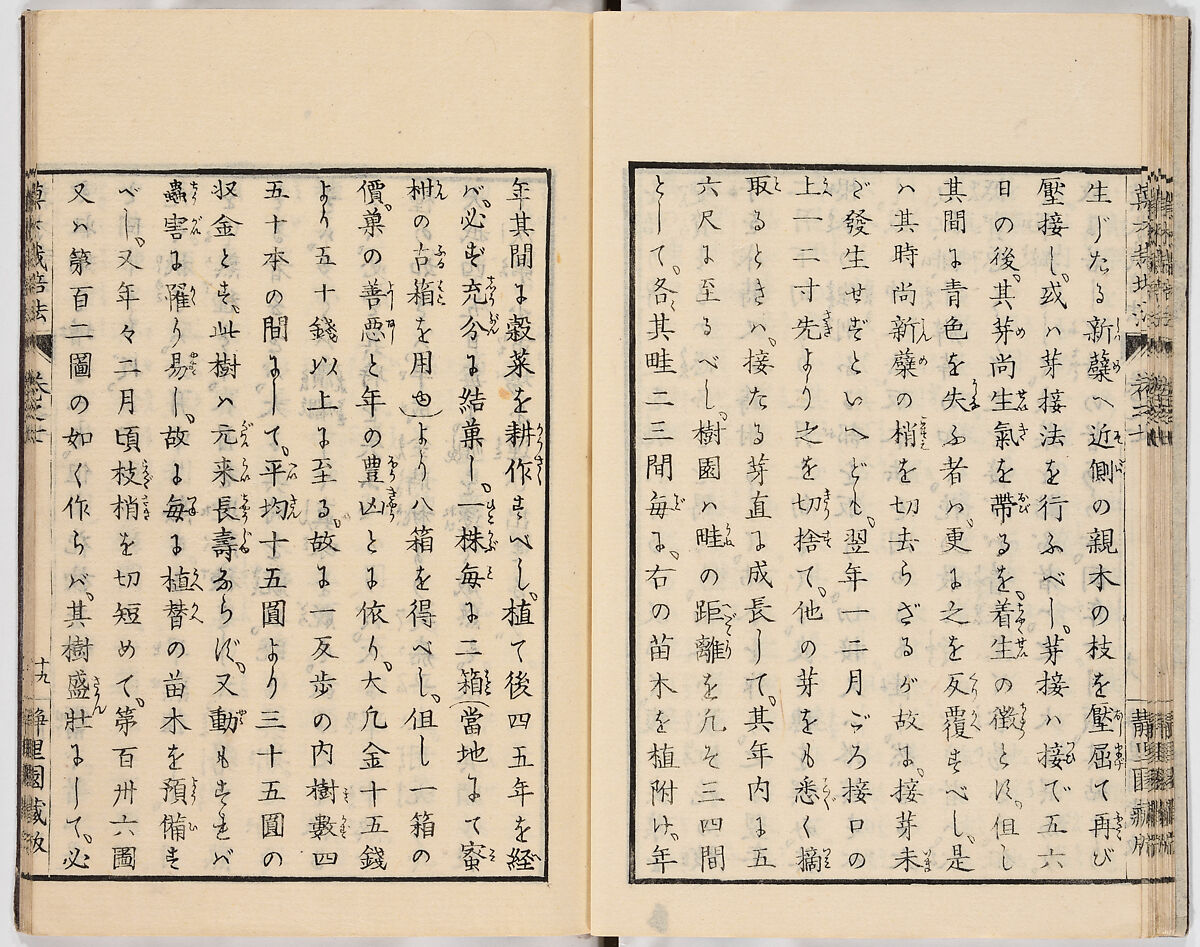 生じたる新蘖へ近側の親木の枝を壓屈て再び
壓接し。或ハ芽接法を行ふべし。芽接ハ接で五六
日の後。其芽尚生氣を帶るを着生の徴とす。但し
其間に青色を失ふ者ハ。更に之を反覆すべし。是
ハ其時尚新蘖の梢を切去らざるが故に。接芽未
だ發生せずといへども。翌年一二月ごろ接口の
上一二寸先より之を切捨て。他の芽をも悉く摘
取るときハ。接たる芽直に成長して。其年内に五
六尺に至るべし。樹園ハ畦の距離を凡そ三四間
として。各其畦二三間每に。右の苗木を植附け。年
年其間に穀菜を耕作すべし。植て後四五年を経
バ。必ず充分に結菓し。一株每に二箱(當地にて蜜
柑の古箱を用ゆ)より八箱を得べし。但し一箱の
價。菓の善惡と年の豊凶とに依り。大凡金十五錢
より五十錢以上に至る。故に一反歩の内樹數四
五十本の間にして。平均十五圓より三十五圓の
収金とす。此樹ハ元来長壽ならず。又動もすれバ
蟲害に罹り易し。故に每に植替の苗木を預備す
べし。又年々二月頃枝梢を切短めて。第百卅六圖
又ハ第百二圖の如く作らバ。其樹盛壯にして。必
十九